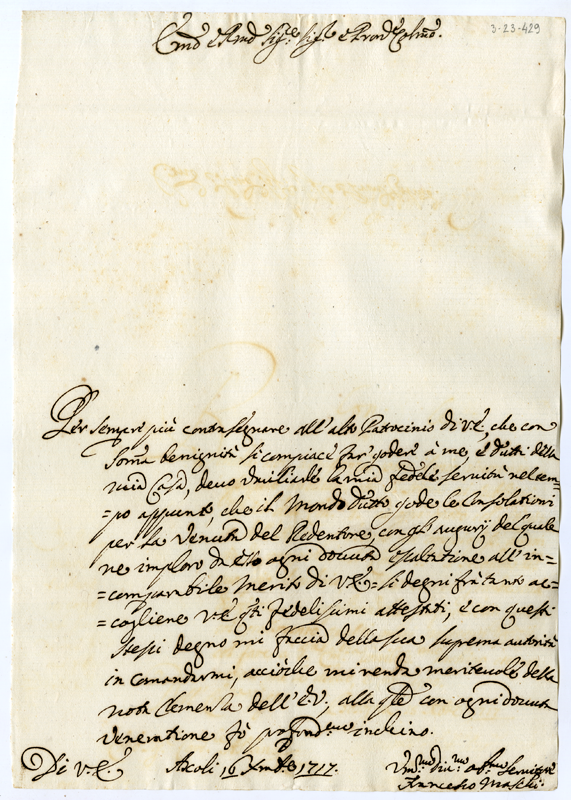 3-23-429
Em̃o e Rm̃o Sig.re Sig.r e Pron̄e Colmo.
Per sempre più contrasegnare all'alto Patrocinio di V.E., che con
som̃a benignità si compiace far godere à me, e tutti della
mia Casa, devo umiliarle la mia fedele servitù nel tem=
=po appunto, che il Mondo tutto gode le Consolationi
per la Venuta del Redentore, con gli augurij del quale
ne imploro da esso ogni dovuta esaltatione all'in=
=comparabile merito di V.E.= si degni frà tanto ac=
=cogliene V.E. q̃ti fedelissimi attestati, e con questi
stessi degno mi faccia della sua suprema autorità
in comandarmi, acciòche mi renda meritevole della
nota Clemenza dell'E.V., alla q̃le con ogni dovuta
veneratione fò profond.me inchino.
Di V.E. Ascoli 16 Xmbre 1717.
Um̃o Servitore
Francesco